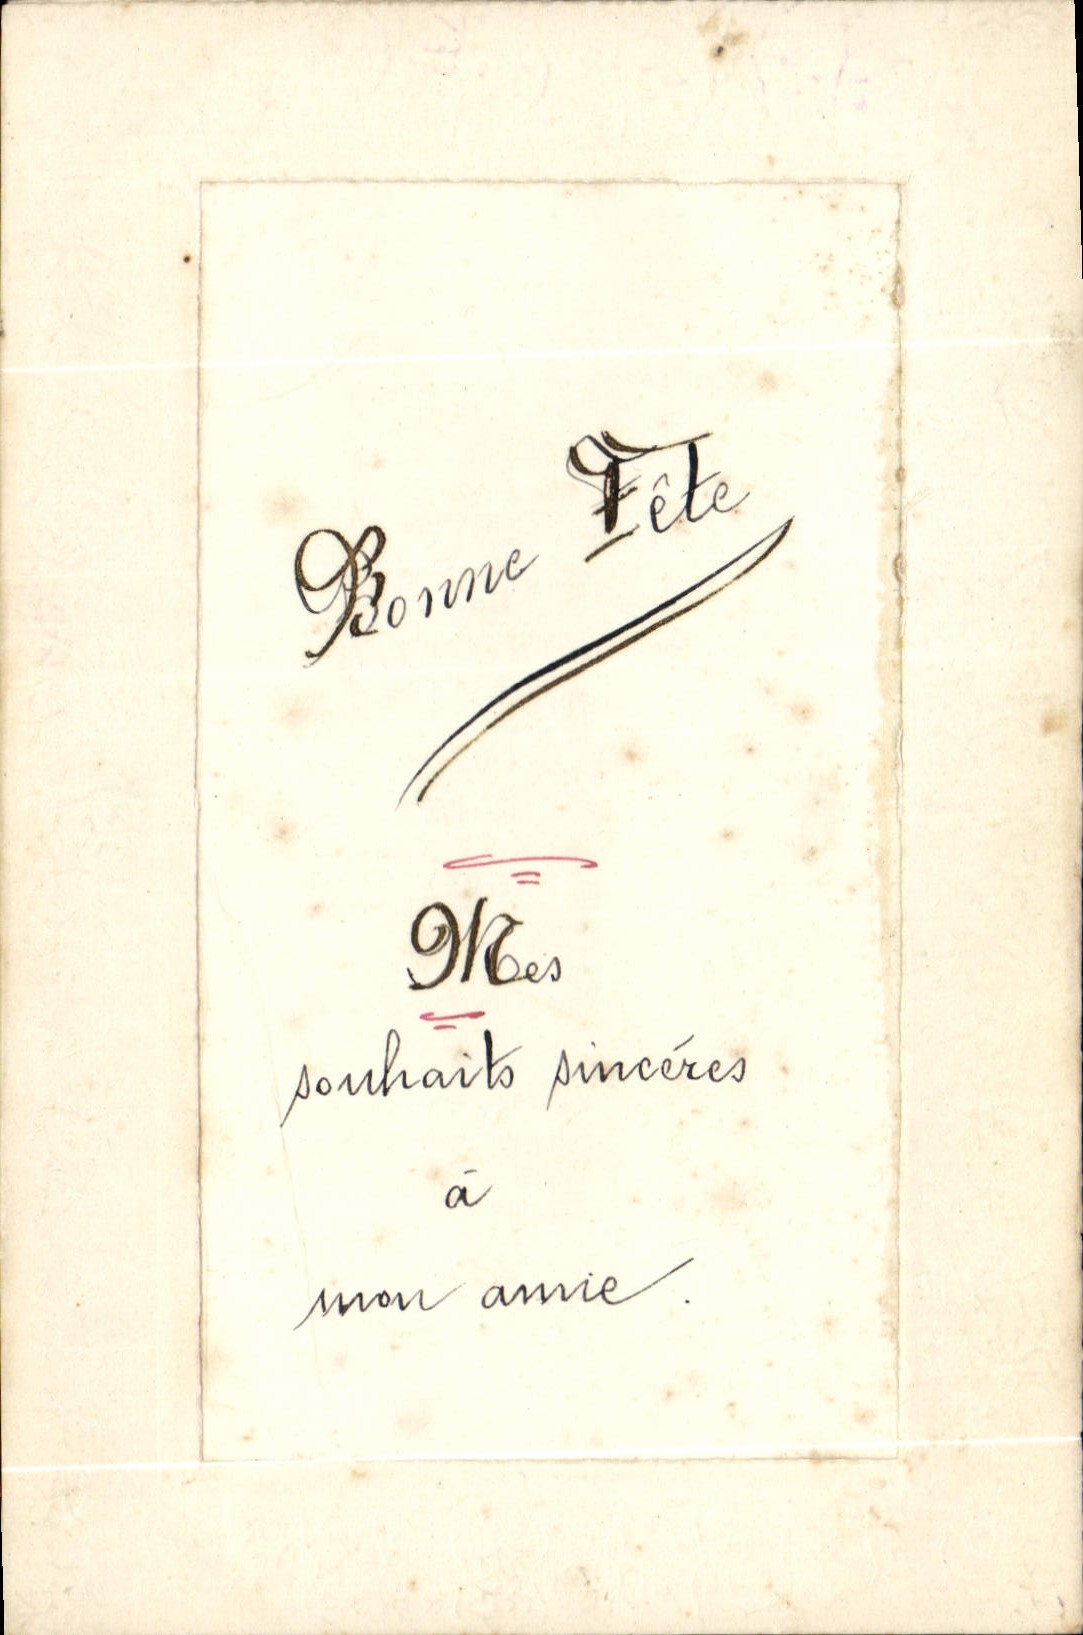 Bonne Fête
Mes
souhaits sincéres
à
mon amie.